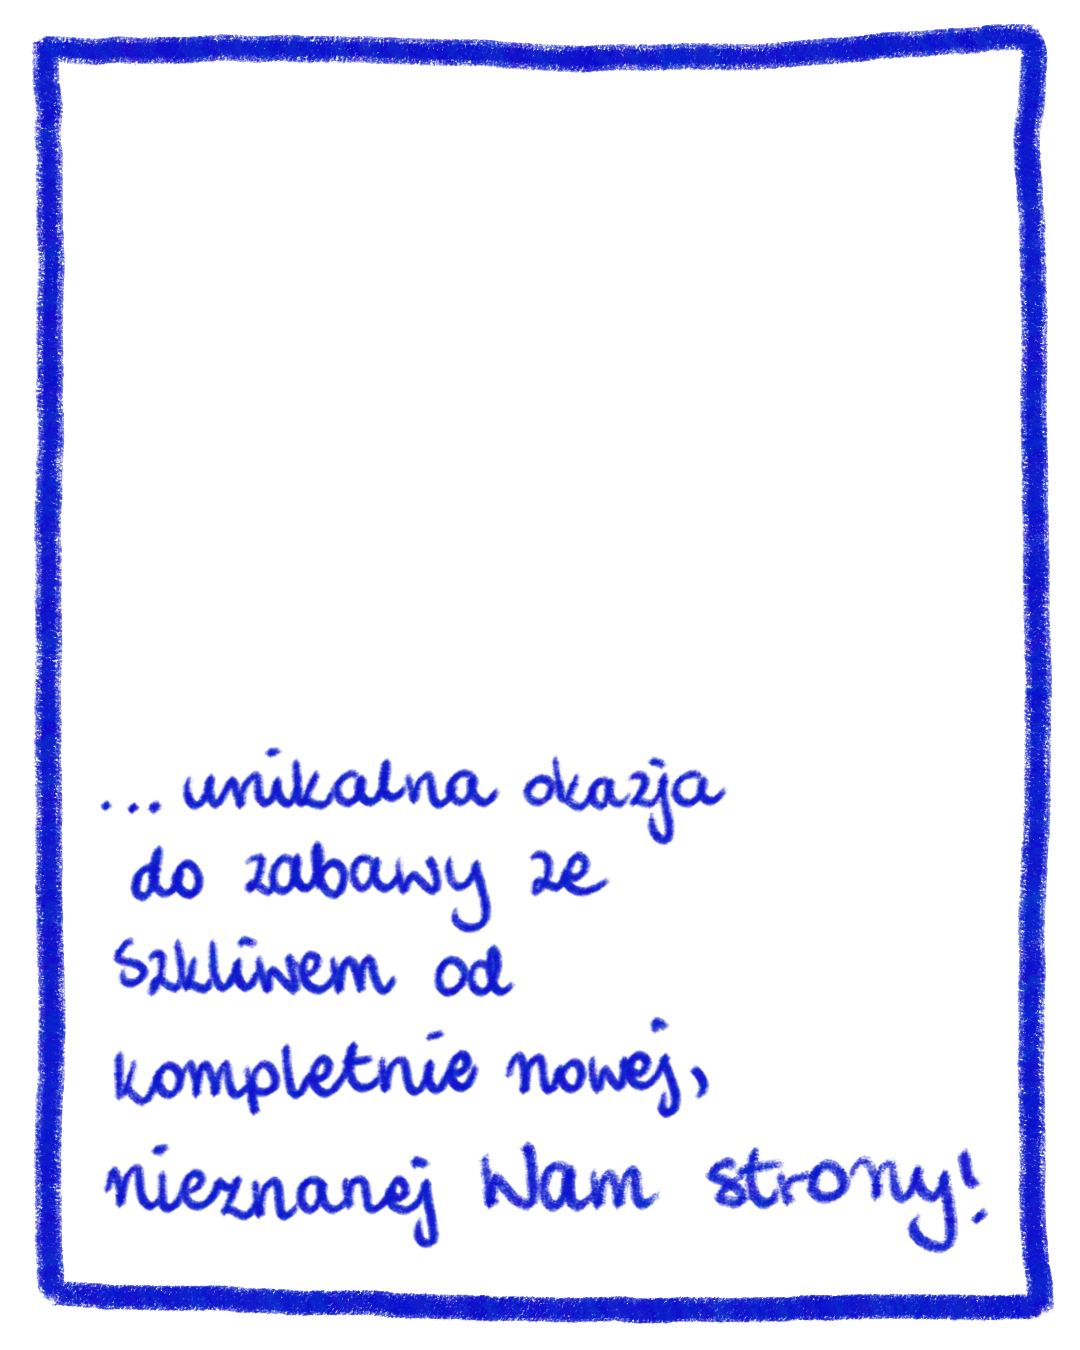 ...unikalna okazja
do zabawy ze
szkliwem od
kompletnie nowej,
nieznanej Wam strony!